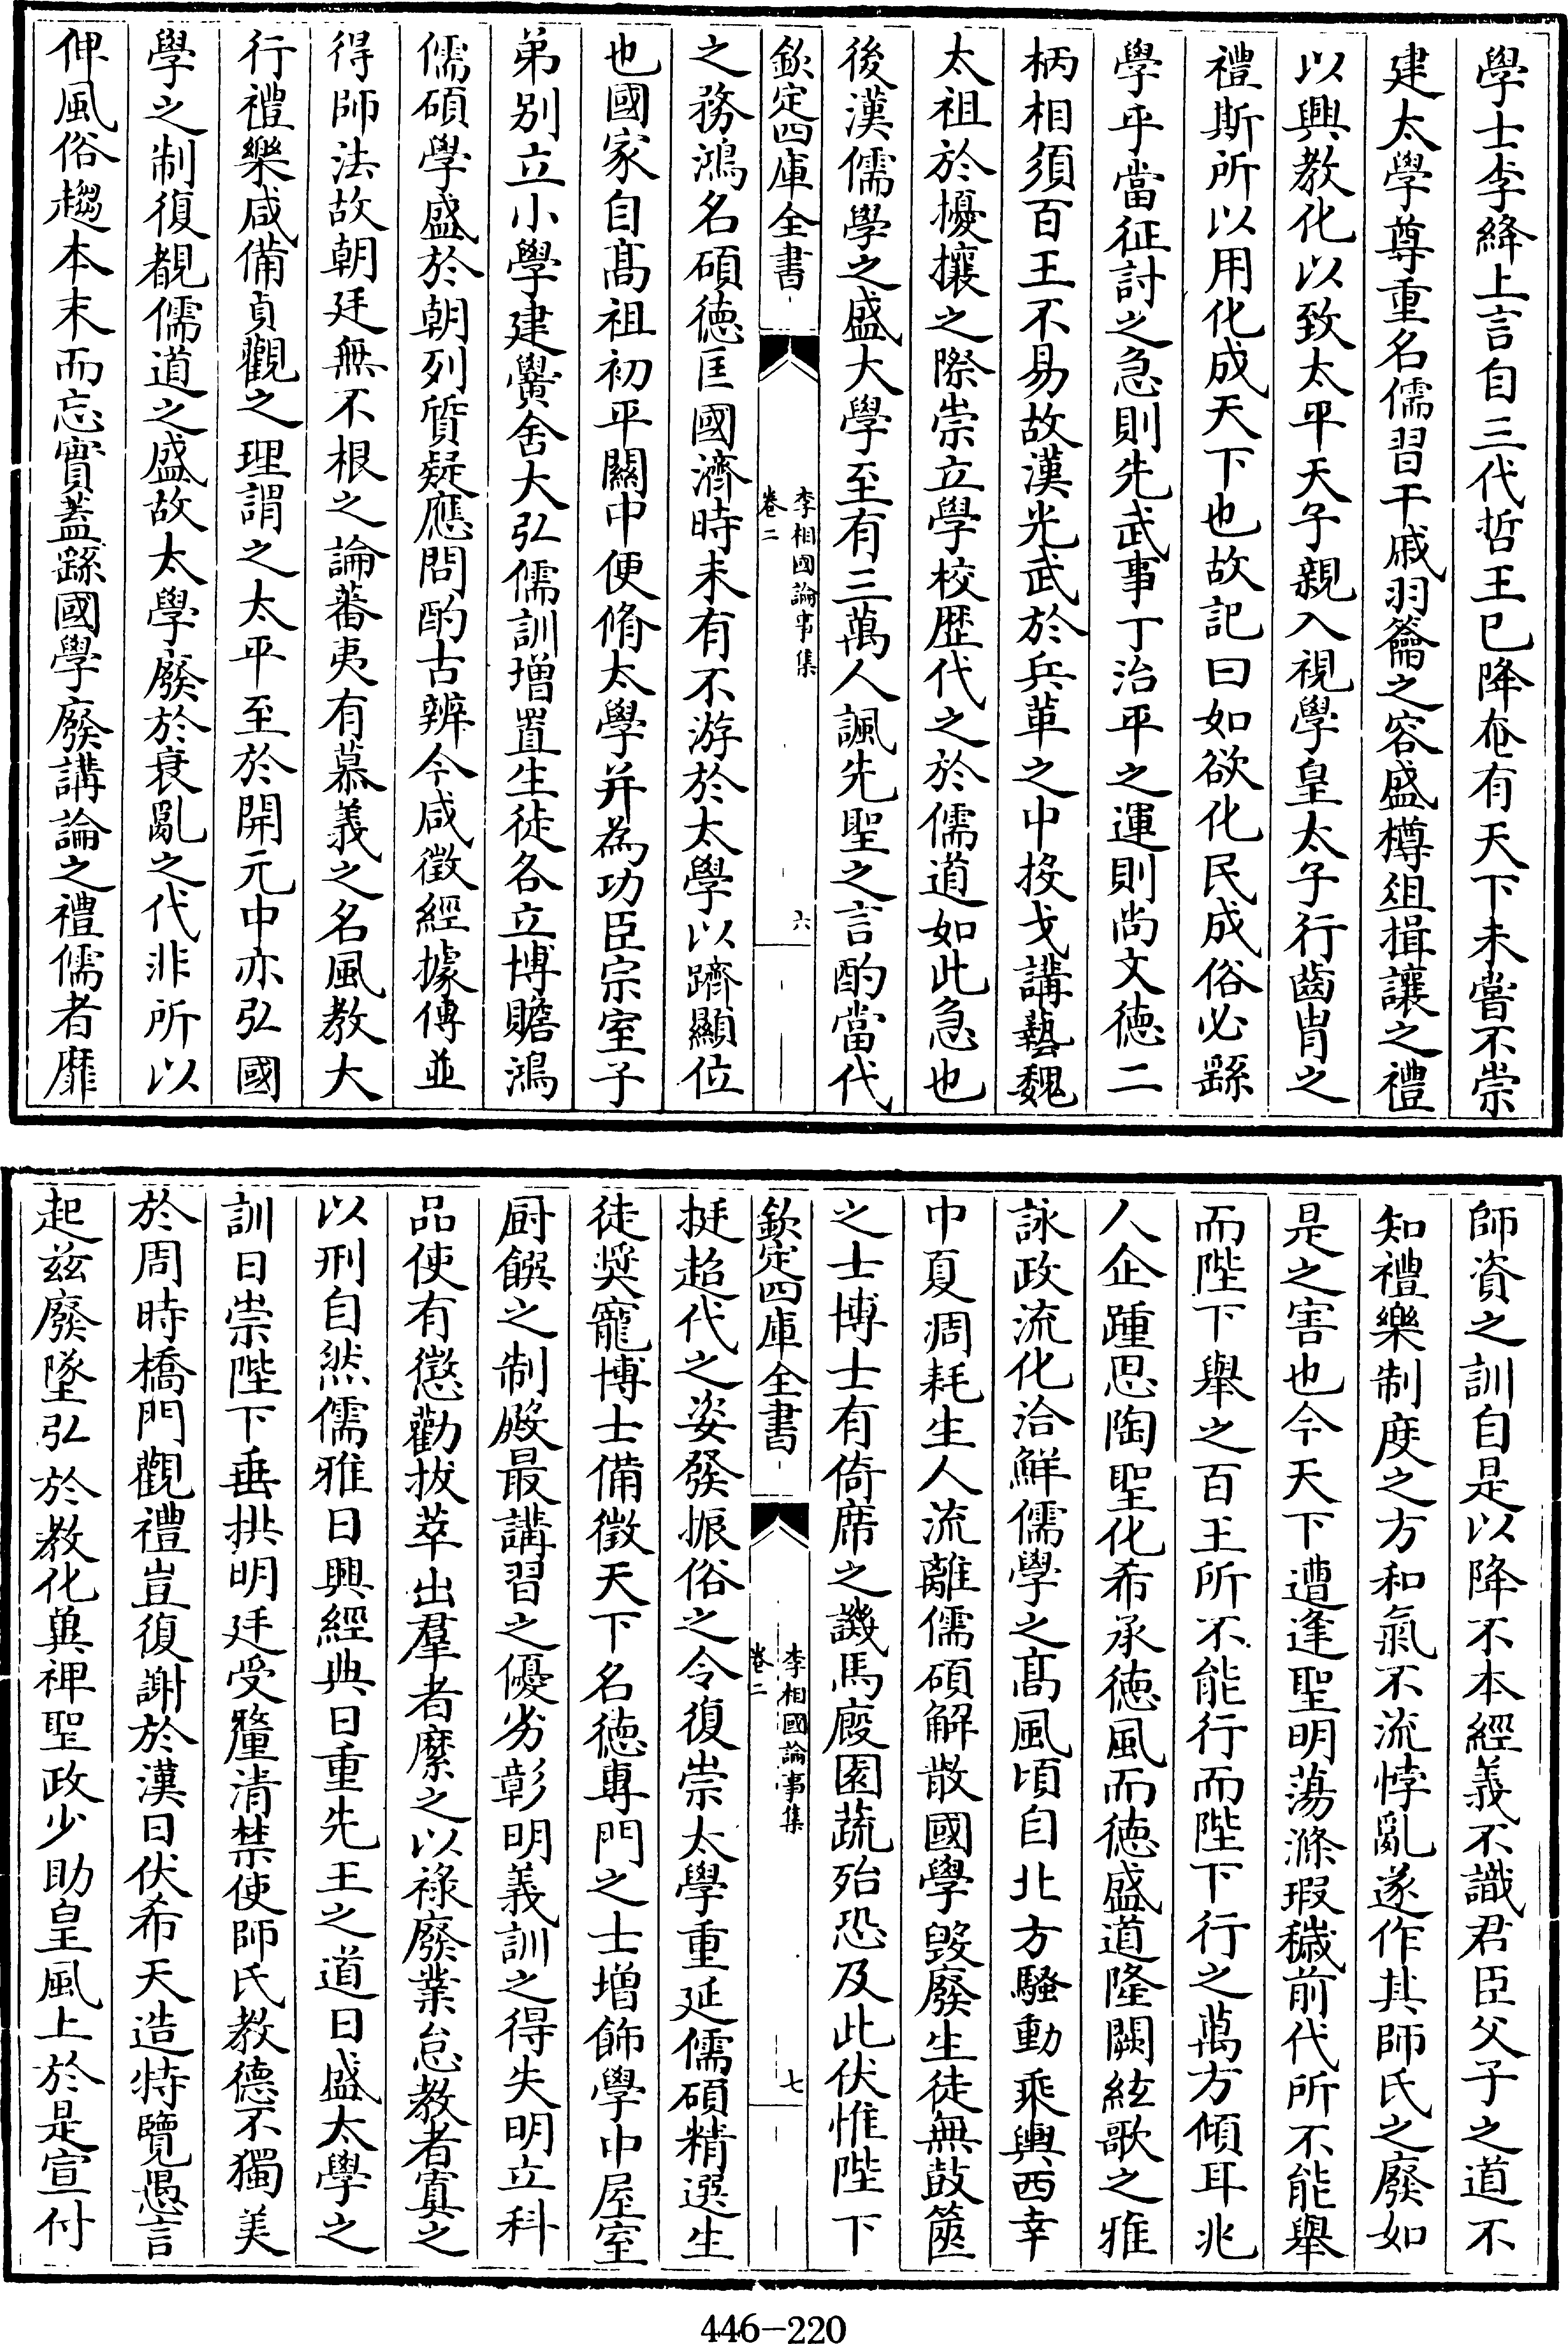 學士李絳上言自三代哲王已降奄有天下未嘗不崇
建太學尊重名儒習干戚羽籥之容盛樽俎揖讓之禮
以興教化以致太平天子親入視學皇太子行齒胄之
禮斯所以用化成天下也故記曰如欲化民成俗必繇
學乎當征討之急則先武事丁治平之運則尚文德二
柄相須百王不易故漢光武於兵革之中投戈講藝魏
太祖於擾攘之際崇立學校歴代之於儒道如此急也
後漢儒學之盛大學至有三萬人諷先聖之言酌當代
欽定四庫全書
李相國論事集
卷二
六
之務鴻名碩德匡國濟時未有不游於太學以躋顯位
也國家自髙祖初平關中便脩太學并為功臣宗室子
弟别立小學建黌舍大弘儒訓增置生徒各立博贍鴻
儒碩學盛於朝列質疑應問酌古辨今咸徵經據傳並
得師法故朝廷無不根之論蕃夷有慕義之名風教大
行禮樂咸備貞觀之理謂之太平至於開元中亦弘國
學之制復覩儒道之盛故太學廢於衰亂之代非所以
俾風俗趨本末而忘實蓋繇國學廢講論之禮儒者靡
師資之訓自是以降不本經義不識君臣父子之道不
知禮樂制度之方和氣不流悖亂遂作其師氏之廢如
是之害也今天下遭逢聖明蕩滌瑕穢前代所不能舉
而陛下舉之百王所不能行而陛下行之萬方傾耳兆
人企踵思陶聖化希承德風而德盛道隆闕絃歌之雅
詠政流化洽鮮儒學之髙風頃自北方騷動乘輿西幸
中夏凋耗生人流離儒碩解散國學毀廢生徒無鼓篋
之士博士有倚席之譏馬廄園蔬殆恐及此伏惟陛下
欽定四庫全書
李相國論事集
卷二
七
挺超代之姿發振俗之令復崇太學重延儒碩精選生
徒奨寵博士備徵天下名德專門之士增飾學中屋室
厨饌之制殿最講習之優劣彰明義訓之得失明立科
品使有懲勸拔萃出羣者縻之以祿廢業怠教者寘之
以刑自然儒雅日興經典日重先王之道日盛太學之
訓日崇陛下垂拱明廷受釐清禁使師氏教德不獨美
於周時橋門觀禮豈復謝於漢日伏希天造特覽愚言
起茲廢墜弘於教化冀裨聖政少助皇風上於是宣付
446-220